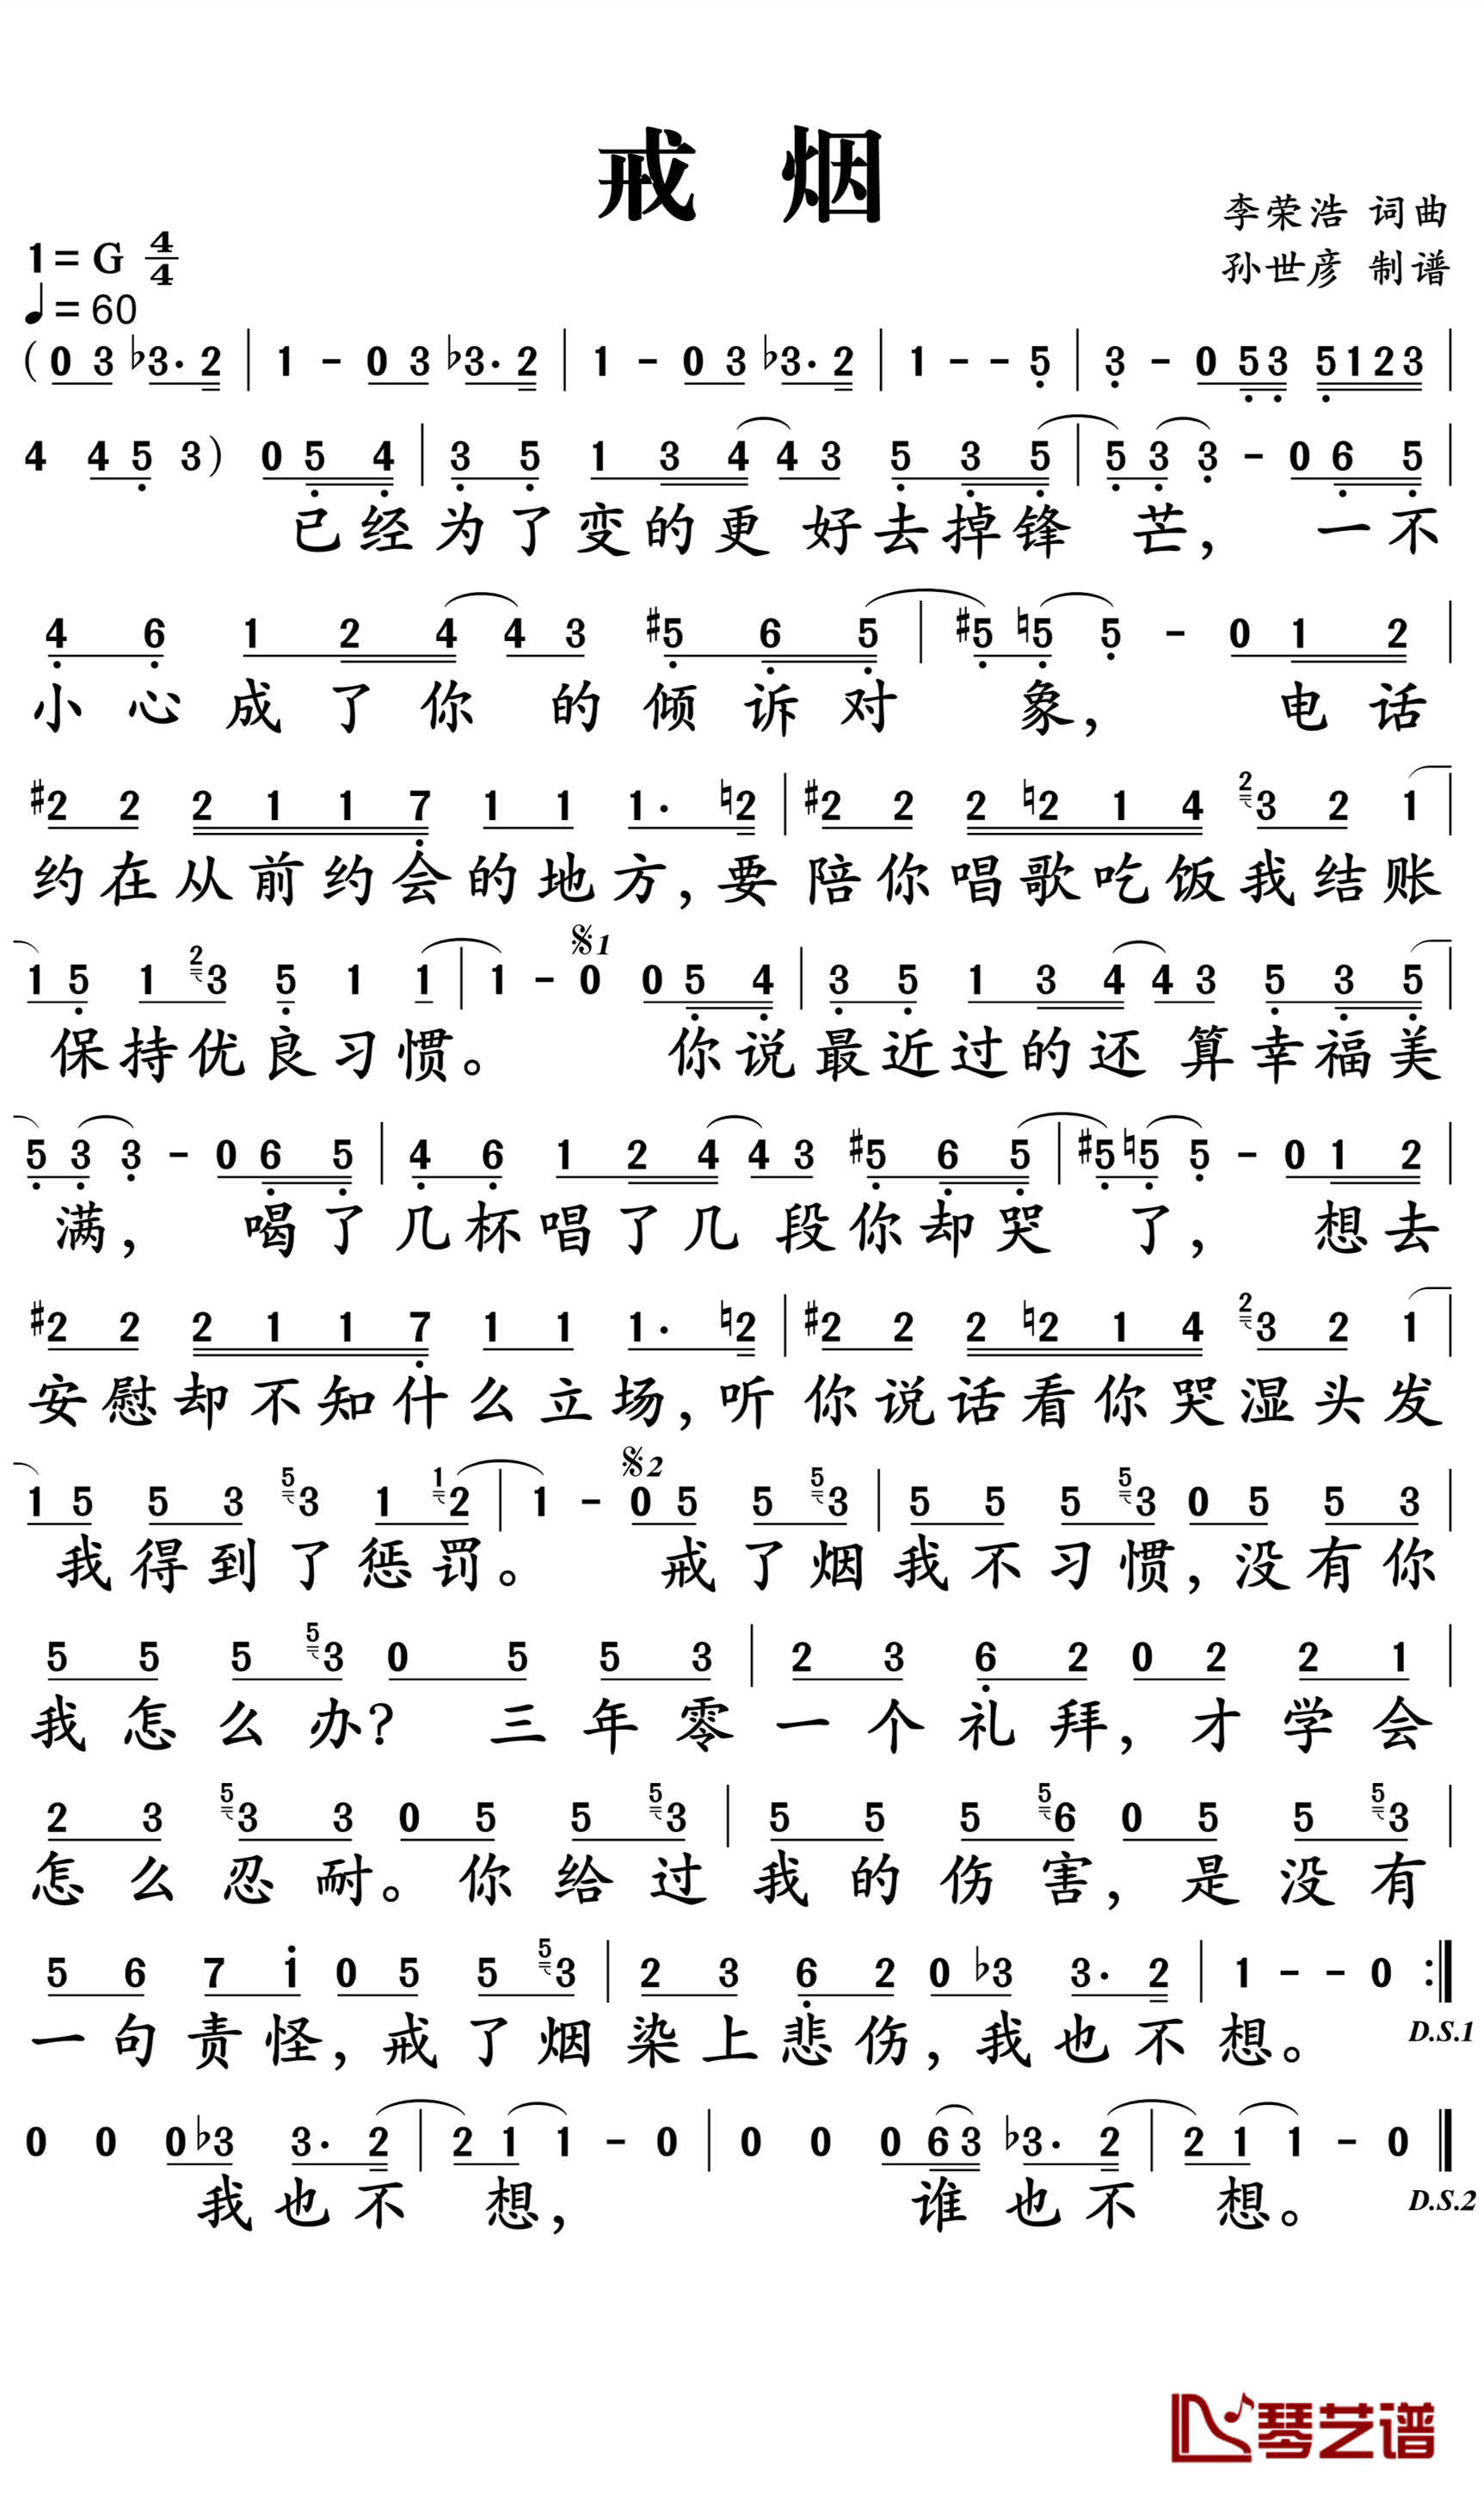 戒 烟
李荣浩 词曲
孙世彦 制谱
1=G 4/4
♩=60
(0 3 ♭3· 2 | 1 - 0 3 ♭3· 2 | 1 - 0 3 ♭3· 2 | 1 - - 5̣ | 3̣ - 0 5̣ 3̣ 5̣ 1 2 3 |
4 4 5̣ 3) 0 5̣ 4̣ | 3̣ 5̣ 1 3 4 4 3 5̣ 3̣ 5̣ | 5̣ 3̣ 3̣ - 0 6̣ 5̣ |
已经为了变的更好去掉锋 芒， 一不
4̣ 6̣ 1 2 4 4 3 ♯5̣ 6̣ 5̣ | ♯5̣ ♮5̣ 5̣ - 0 1 2 |
小心成了你 的倾诉对 象， 电话
♯2 2 2 1 1 7̣ 1 1 1· ♮2 | ♯2 2 2 ♮2 1 4 2 3 2 1 |
约在从前约会的地方，要陪你唱歌吃饭我结账
1 5̣ 1 2 3 5̣ 1 1 | 1 - 𝄋1 0 0 5̣ 4̣ | 3̣ 5̣ 1 3 4 4 3 5̣ 3̣ 5̣ |
保持优良习惯。 你说最近过的还 算幸福美
5̣ 3̣ 3̣ - 0 6̣ 5̣ | 4̣ 6̣ 1 2 4 4 3 ♯5̣ 6̣ 5̣ | ♯5̣ ♮5̣ 5̣ - 0 1 2 |
满， 喝了几杯唱了几 段你却哭 了， 想去
♯2 2 2 1 1 7̣ 1 1 1· ♮2 | ♯2 2 2 ♮2 1 4 2 3 2 1 |
安慰却不知什么立场，听你说话看你哭湿头发
1 5 5 3 5 3 1 1 2 | 1 - 𝄋2 0 5 5 5 3 | 5 5 5 5 3 0 5 5 3 |
我得到了惩罚。 戒了烟我不习惯，没有你
5 5 5 5 3 0 5 5 3 | 2 3 6̣ 2 0 2 2 1 |
我怎么办？ 三年零一个礼拜，才学会
2 3 5 3 3 0 5 5 5 3 | 5 5 5 5 6 0 5 5 5 3 |
怎么忍耐。你给过我的伤害，是没有
5 6 7 1̇ 0 5 5 5 3 | 2 3 6̣ 2 0 ♭3 3· 2 | 1 - - 0 :‖
一句责怪，戒了烟染上悲伤，我也不想。 D.S.1
0 0 0 ♭3 3· 2 | 2 1 1 - 0 | 0 0 0 6 3 ♭3· 2 | 2 1 1 - 0 ‖
我也不 想， 谁也不 想。 D.S.2
琴艺谱